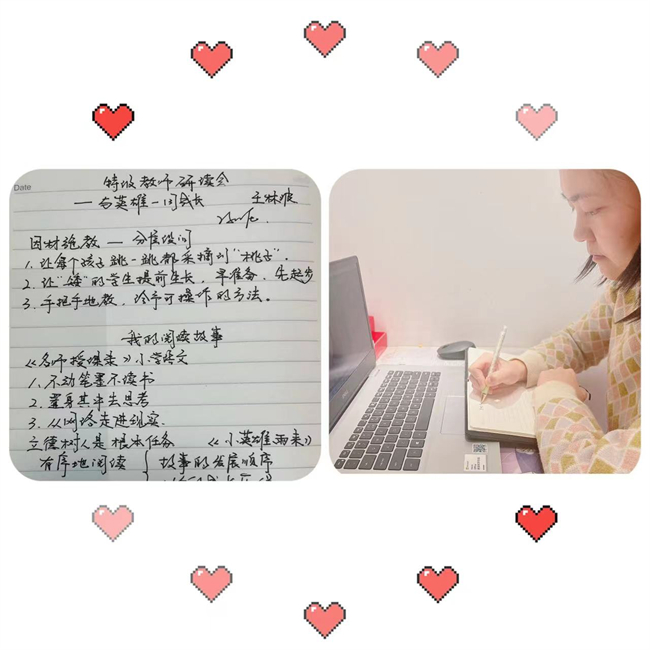 Date
特级教师研读会
——与英雄一同成长 王林波
因材施教——分层设问
1. 让每个孩子跳一跳都采摘到“桃子”.
2. 让“矮”的学生提前生长，早准备、先起步
3. 手把手地教，给予可操作的方法。
我的阅读故事
《名师授课录》小学语文
1. 不动笔墨不读书
2. 置身其中去思考
3. 从网络走进现实.
立德树人是根本任务 《小英雄雨来》
有序地阅读 { 故事的发展顺序